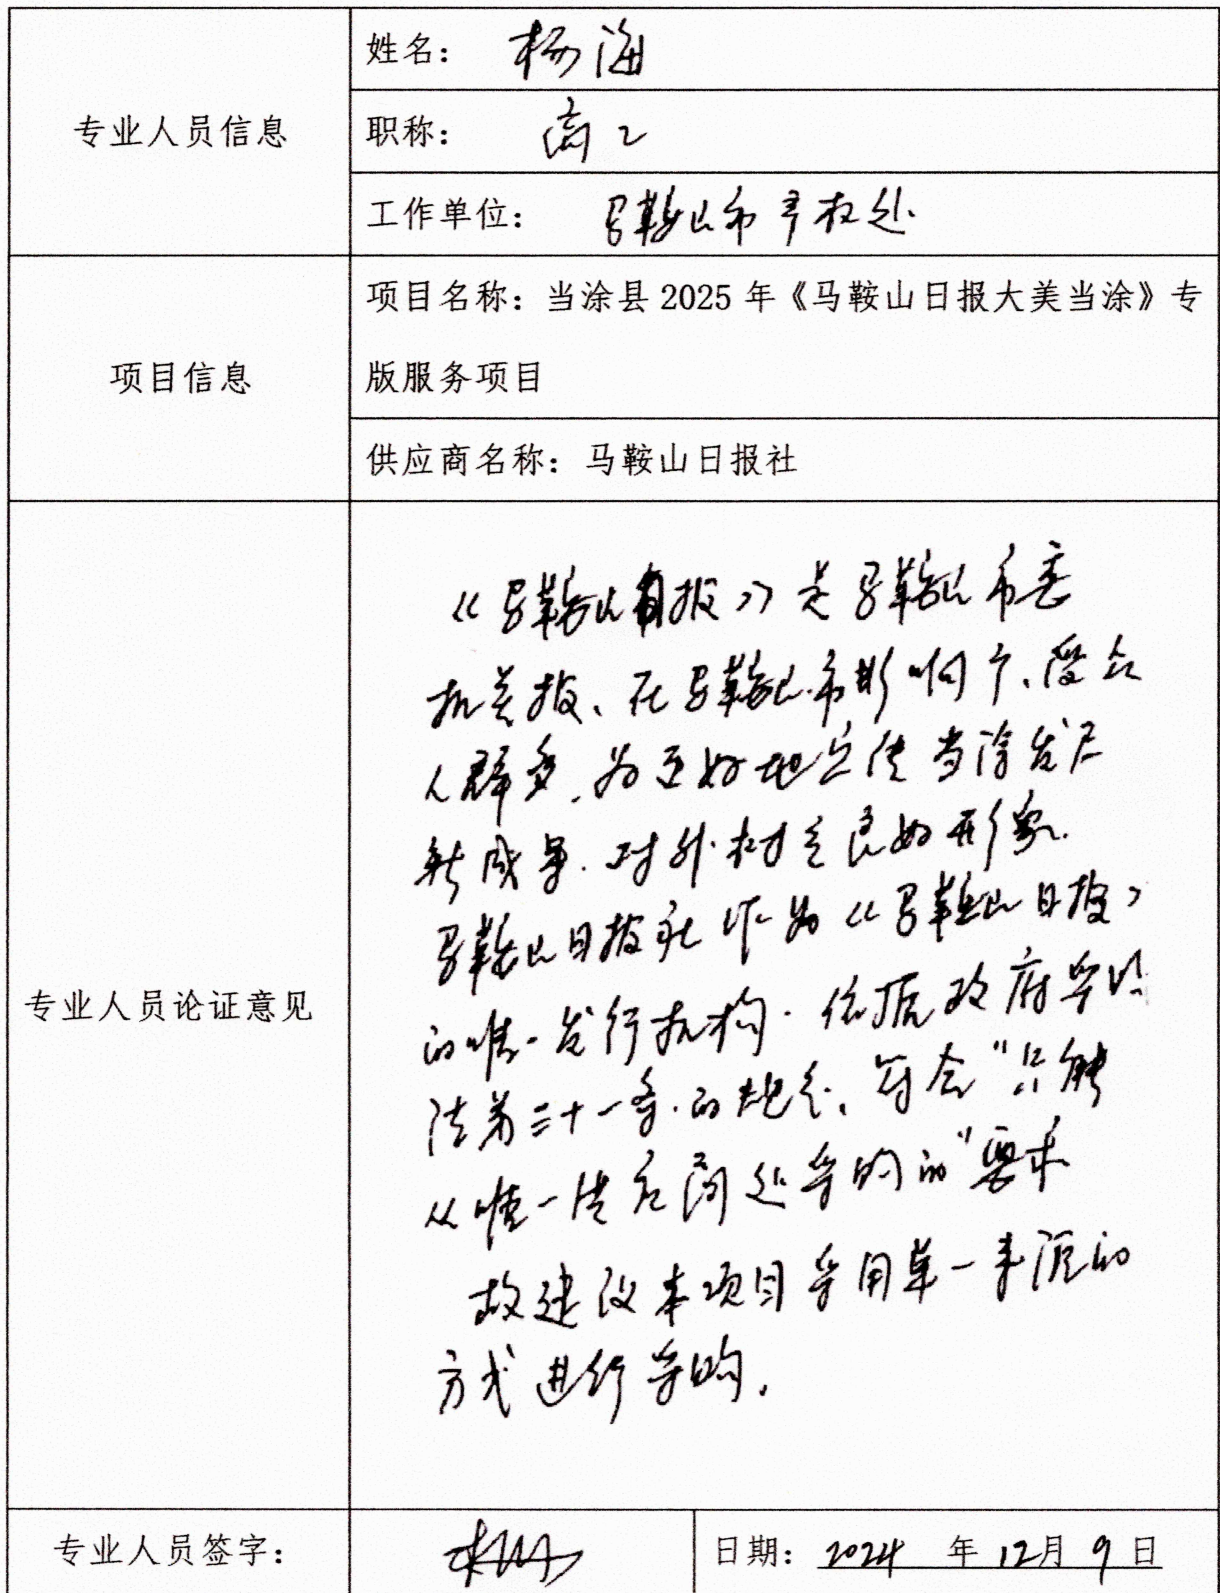 专业人员信息
姓名： 杨海
职称： 高工
工作单位： 马鞍山市产权处
项目信息
项目名称：当涂县 2025 年《马鞍山日报大美当涂》专
版服务项目
供应商名称：马鞍山日报社
专业人员论证意见
《马鞍山日报》是马鞍山市委
机关报、在马鞍山市影响广、受众
人群多、为更好地宣传当涂发展
新成果、对外树立良好形象.
马鞍山日报社作为《马鞍山日报》
的唯一发行机构.依据政府采购
法第三十一条的规定、符合"只能
从唯一供应商处采购的"要求
故建议本项目采用单一来源的
方式进行采购.
专业人员签字：
日期： 2024 年 12月 9 日